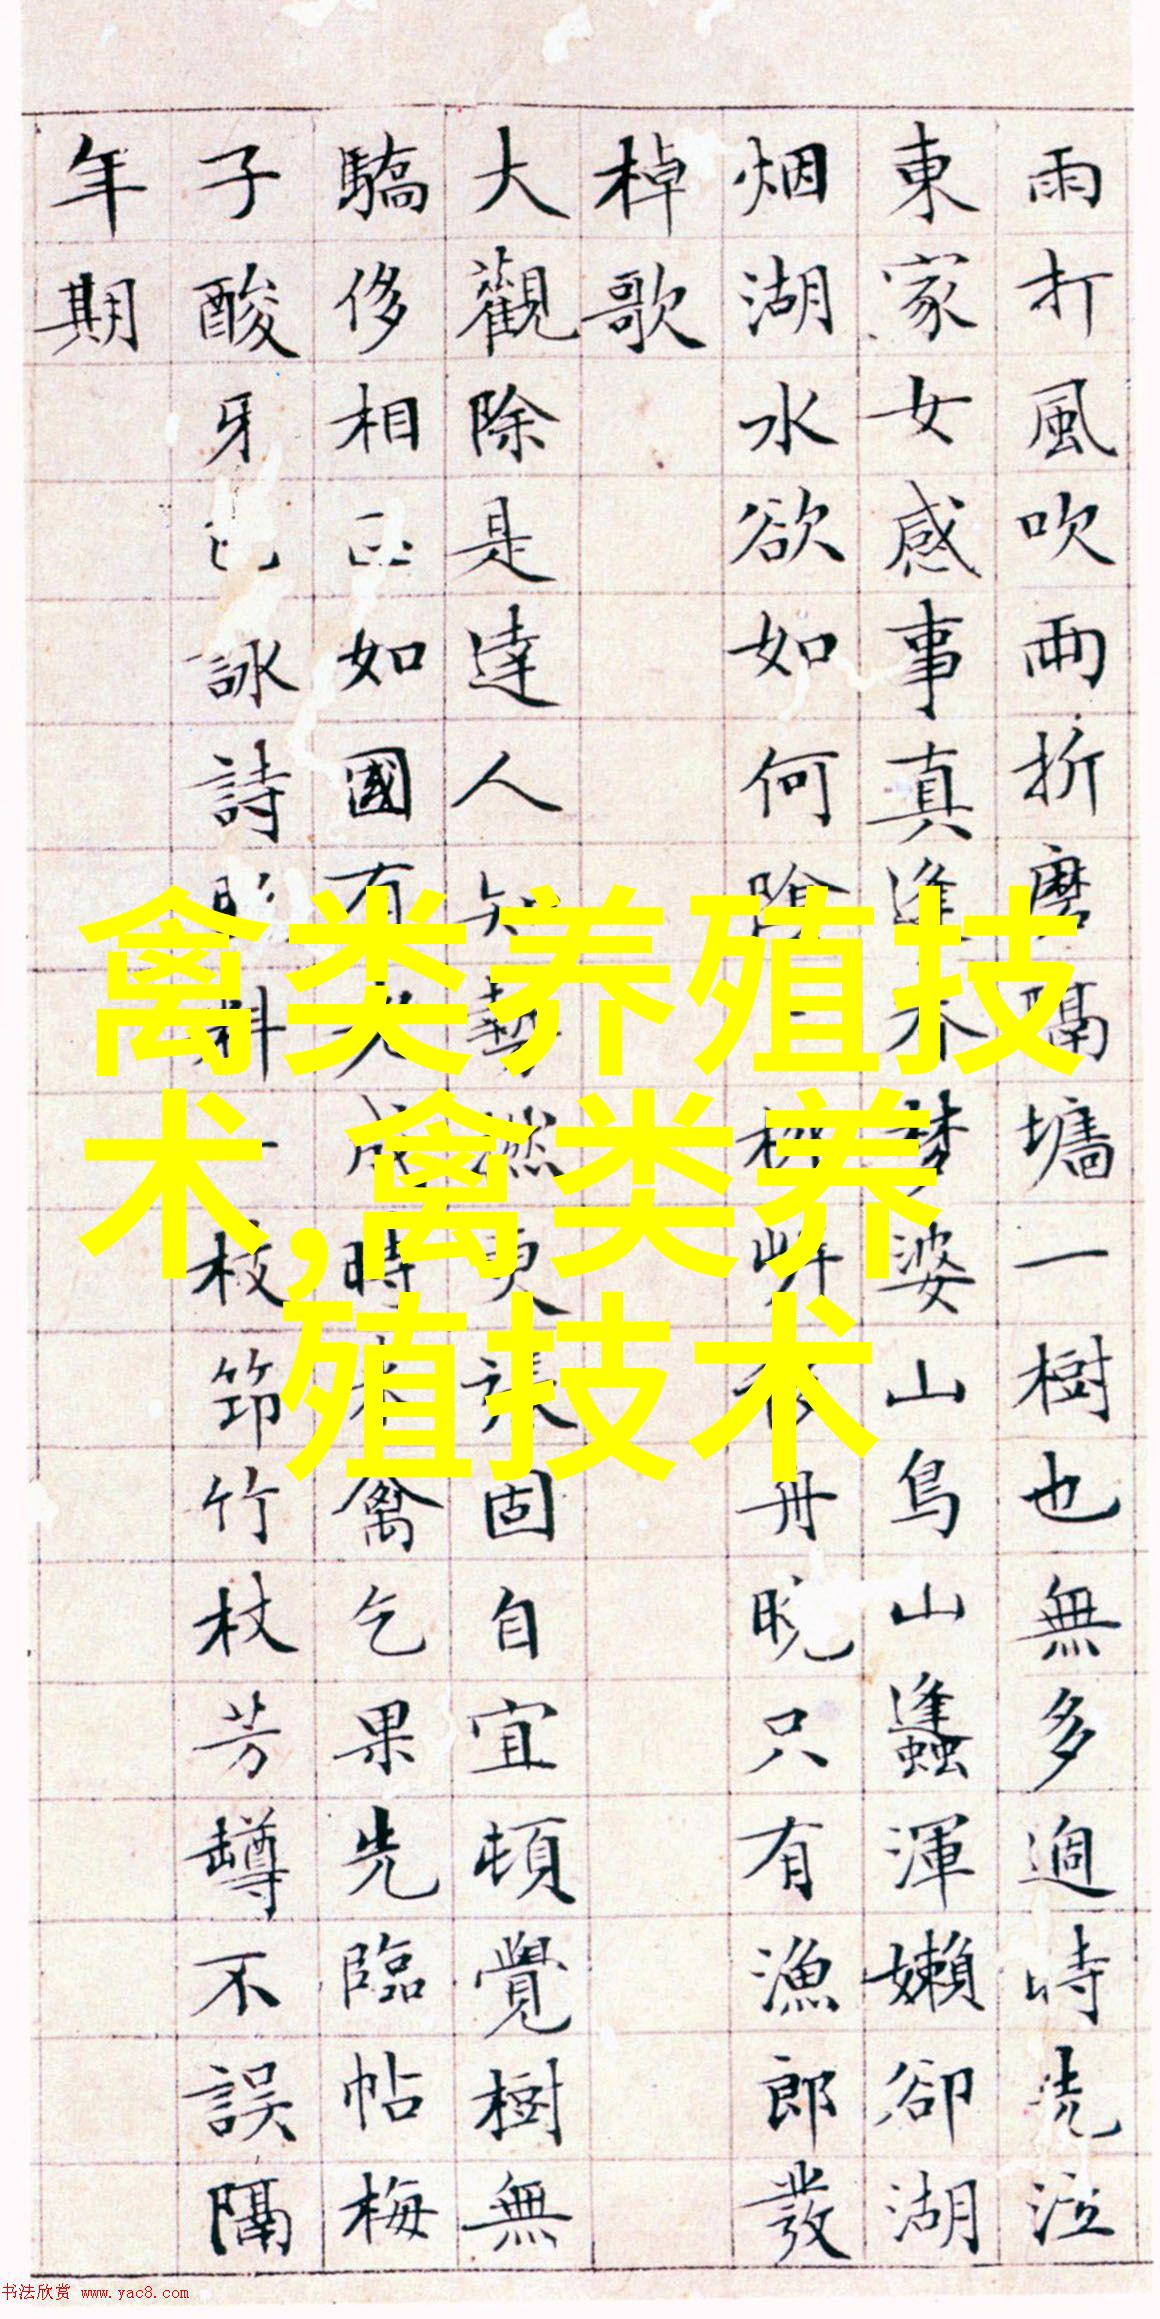 雨打風吹雨折磨隔墻一樹也無多過時洗泣
東家女感事真逢春夢婆山鳥山蠭渾嬾卻湖
烟湖水欲如何岸舟晚只有漁郎發
棹歌
大觀除是達人知藝然更張固自宜頓覺樹無
驕侈相如國有成時禽乞果先臨帖梅
子酸牙詠詩料一枝筇竹杖芳罇不誤隔
年期
禽类养殖技
术,禽类养
殖技术
书法欣赏 www.yac8.com